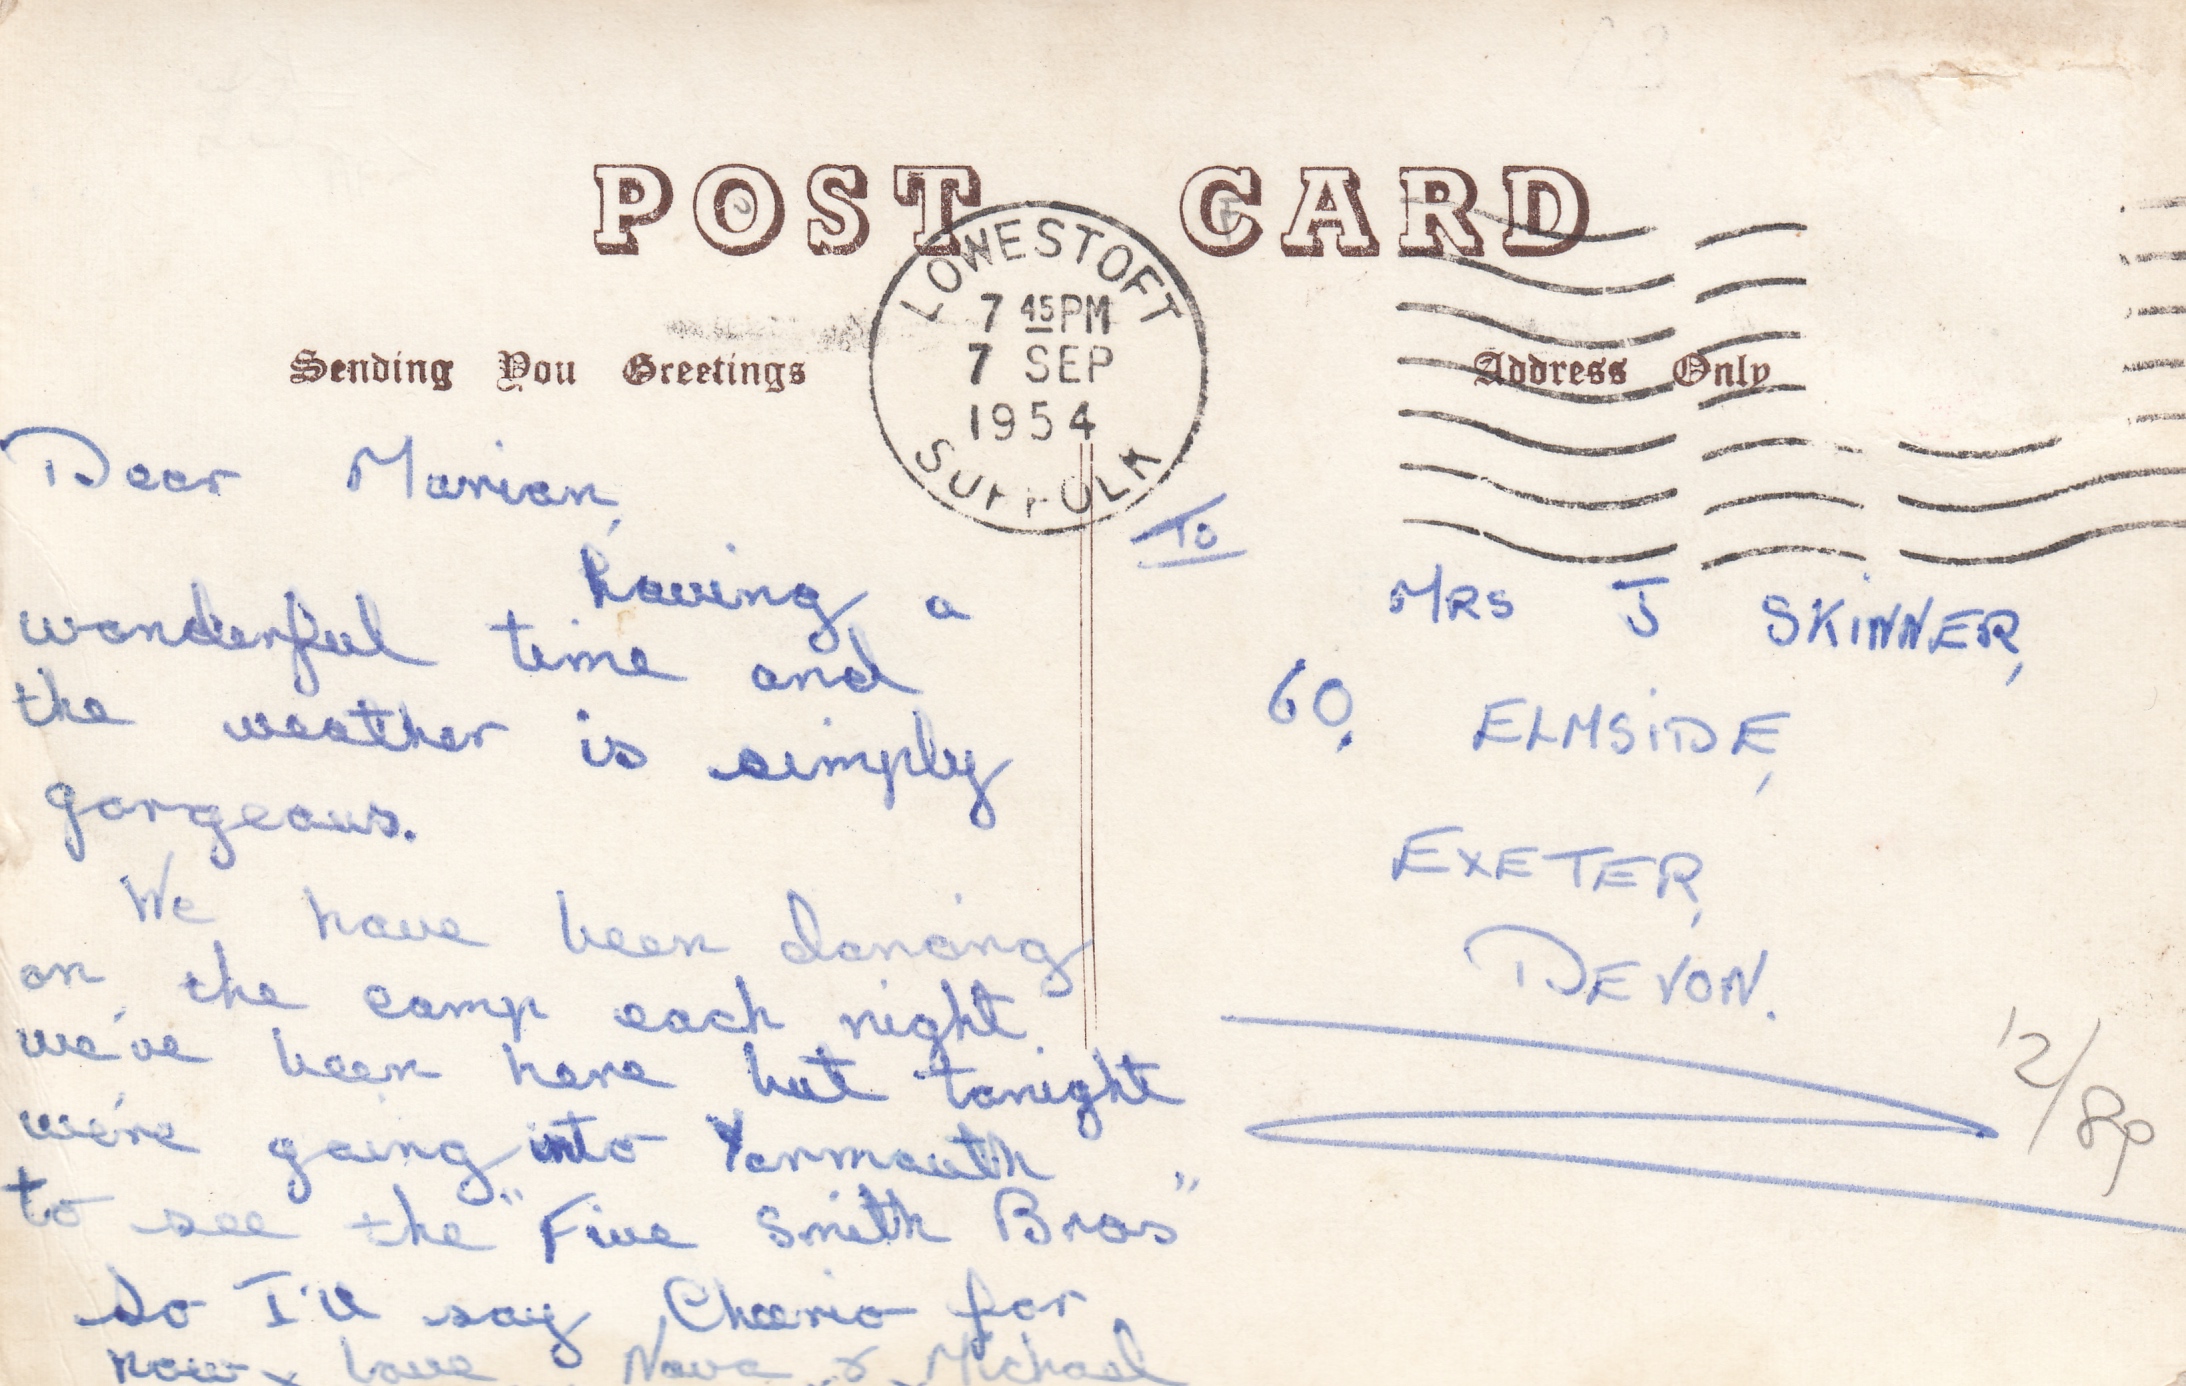 POST CARD
LOWESTOFT
7 45PM
7 SEP
1954
SUFFOLK
Sending You Greetings
Address Only
Dear Marian,
having a
wonderful time and
the weather is simply
gorgeous.
We have been dancing
on the camp each night
we've been here but tonight
we're going into Yarmouth
to see the "Five Smith Bros"
So I'll say Cheerio for
now, Love Nova & Michael
To
MRS J SKINNER,
60, ELMSIDE,
EXETER,
DEVON.
12/80